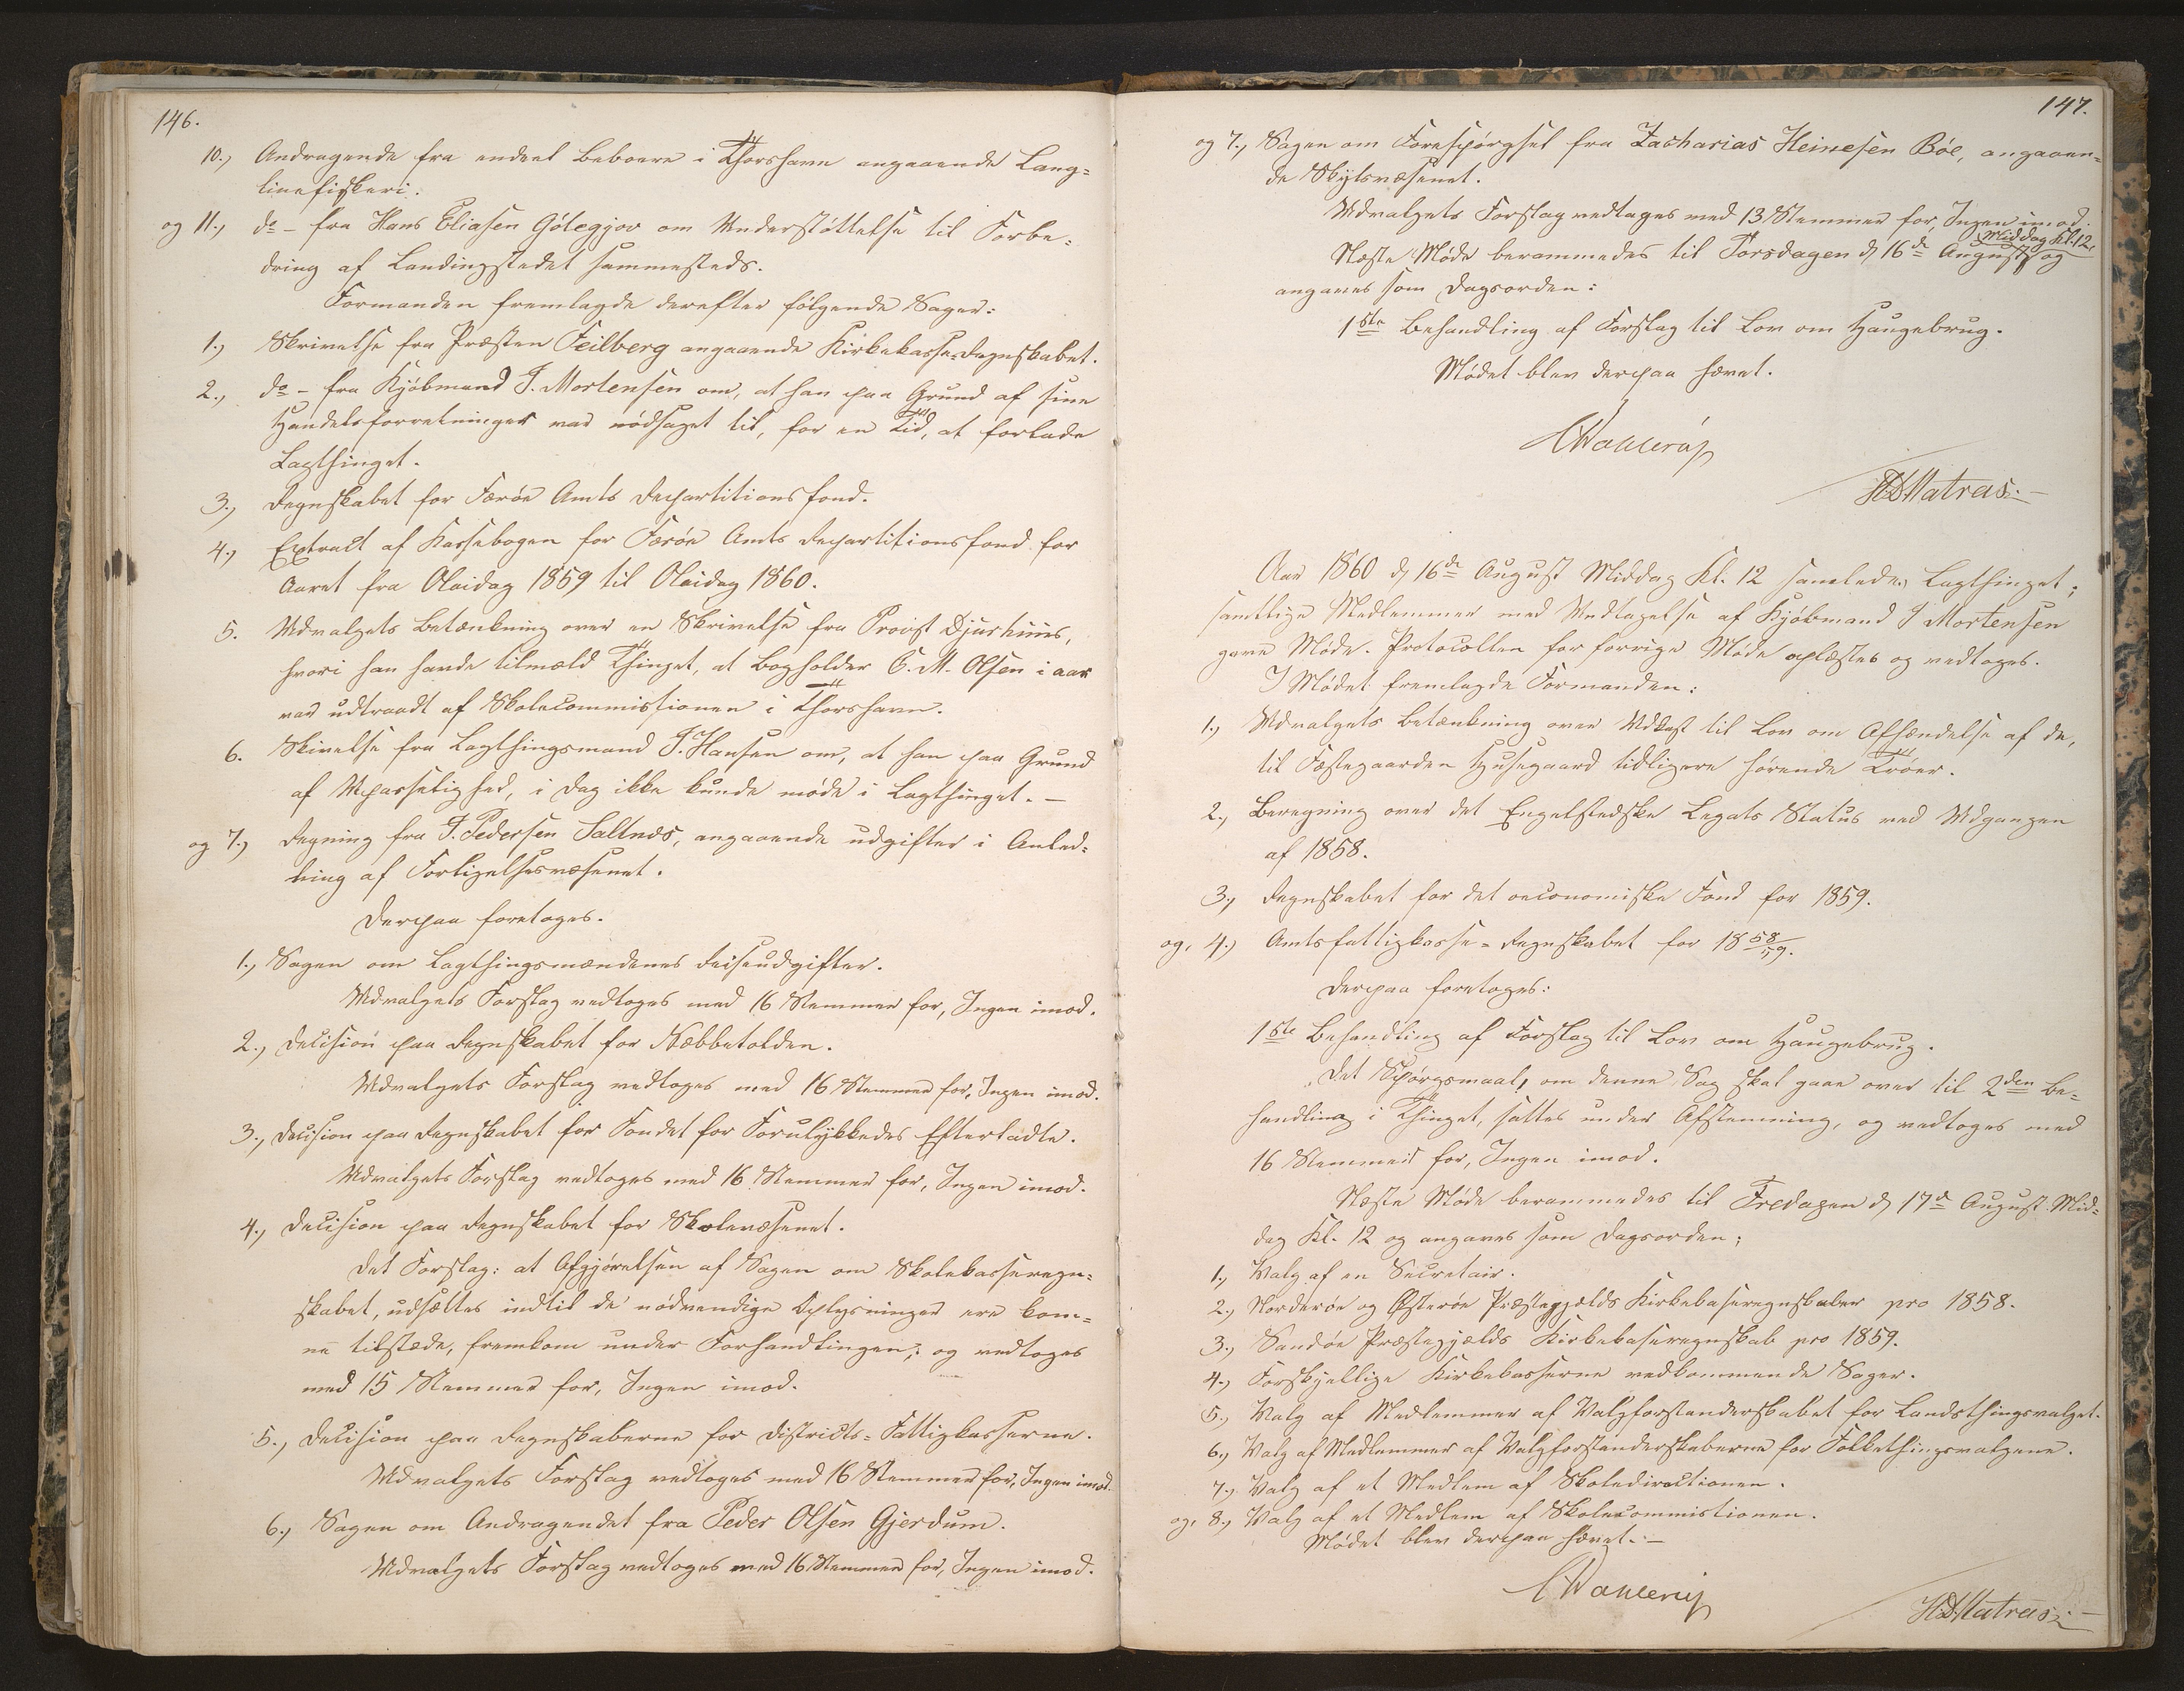 146.
10., Andragende fra endeel Beboere i Thorshavn angaaende Lang-
linefiskeri.
og 11., do - fra Hans Eliasen Götegjov om Understöttelse til Forbe-
dring af Landingstedet sammesteds.
Formanden fremlagde derefter fölgende Sager:
1., Skrivelse fra Præsten Feilberg angaaende Kirkekasse-Regnskabet.
2., do - fra Kjöbmand J. Mortensen om, at han paa Grund af sine
Handelsforretninger var nödsaget til, for en Tid, at forlade
Lagthinget.
3., Regnskabet for Færöe Amts Repartitionsfond.
4., Extract af Kassebogen for Færöe Amts Repartitionsfond for
Aaret fra Olaidag 1859 til Olaidag 1860.
5. Udvalgets Betænkning over en Skrivelse fra Provst Djurhuus,
hvori han havde tilmeld Thinget, at Bogholder C. M. Olsen i aar
var udtraadt af Skolecommissionen i Thorshavn.
6. Skivelse fra Lagthingsmand J. Hansen om, at han paa Grund
af Upasselighed, i Dag ikke kunde möde i Lagthinget. -
og 7., Regning fra J. Pedersen Saltnæs, angaaende udgifter i Anled-
ning af Forligelsesvæsenet.
Derpaa foretoges.
1., Sagen om Lagthingsmændenes Reiseudgifter.
Udvalgets Forslag vedtoges med 16 Stemmer for, Ingen imod.
2., Decision paa Regnskabet for Næbbetolden.
Udvalgets Forslag vedtoges med 16 Stemmer for, Ingen imod.
3., Decision paa Regnskabet for Fondet for Forulykkedes Efterladte.
Udvalgets Forslag vedtoges med 16 Stemmer for, Ingen imod.
4., Decision paa Regnskabet for Skolevæsenet.
Det Forslag: at Afgjörelsen af Sagen om Skolekasseregn-
skabet, udsættes indtil de nödvendige Oplysninger ere kom-
ne tilstede, fremkom under Forhandlingen; og vedtoges
med 15 Stemmer for, Ingen imod.
5., Decision paa Regnskaberne for Districts-Fattigkasserne.
Udvalgets Forslag vedtoges med 16 Stemmer for, Ingen imod.
6., Sagen om Andragendet fra Peder Olsen Gjerdum.
Udvalgets Forslag vedtoges med 16 Stemmer for, Ingen imod.
147.
og 7., Sagen om Forespörgsel fra Zacharias Heinesen Böe, angaaen-
de Skytsvæsenet.
Udvalgets Forslag vedtoges med 13 Stemmer for, Ingen imod.
Middag Kl. 12,
Næste Möde berammedes til Torsdagen d 16de August og
angaves som Dagsorden:
1ste Behandling af Forslag til Lov om Haugebrug.
Mödet blev derpaa hævet.
CWahlerup
HDMatras. -
Aar 1860 d 16de August Middag Kl. 12 samledes Lagthinget;
samtlige Medlemmer med Undtagelse af Kjöbmand J Mortensen
gave Möde. Protocollen for forrige Möde oplæstes og vedtoges.
I Mödet fremlagde Formanden:
1., Udvalgets Betænkning over Udkast til Lov om Afhændelse af de,
til Fæstegaarden Husegaard tidligere hörende Tröer.
2., Beregning over det Engelstedske Legats Status ved Udgangen
af 1858.
3., Regnskabet for det oeconomiske Fond for 1859.
og, 4., Amtsfattigkasse-Regnskabet for 1858/59.
Derpaa foretoges:
1ste Behandling af Forslag til Lov om Haugebrug.
Det Spörgsmaal, om denne Sag skal gaae over til 2den Be-
handling i Thinget, sattes under Afstemning, og vedtoges med
16 Stemmer for, Ingen imod.
Næste Möde berammedes til Fredagen d 17de August Mid-
dag Kl. 12 og angaves som Dagsorden;
1., Valg af en Secretair.
2., Norderöe og Österöe Præstegjælds Kirkekaseregnskaber pro 1858.
3., Sandöe Præstegjælds Kirkekaseregnskab pro 1859.
4., Forskjellige Kirkekasserne vedkommende Sager.
5., Valg af Medlemmer af Valgforstanderskabet for Landsthingsvalget.
6., Valg af Medlemmer af Valgforstanderskaberne for Folkethingsvalgene.
7., Valg af et Medlem af Skoledirectionen.
og, 8., Valg af et Medlem af Skolecommistionen.
Mödet blev derpaa hævet. -
CWahlerup
HDMatras. -